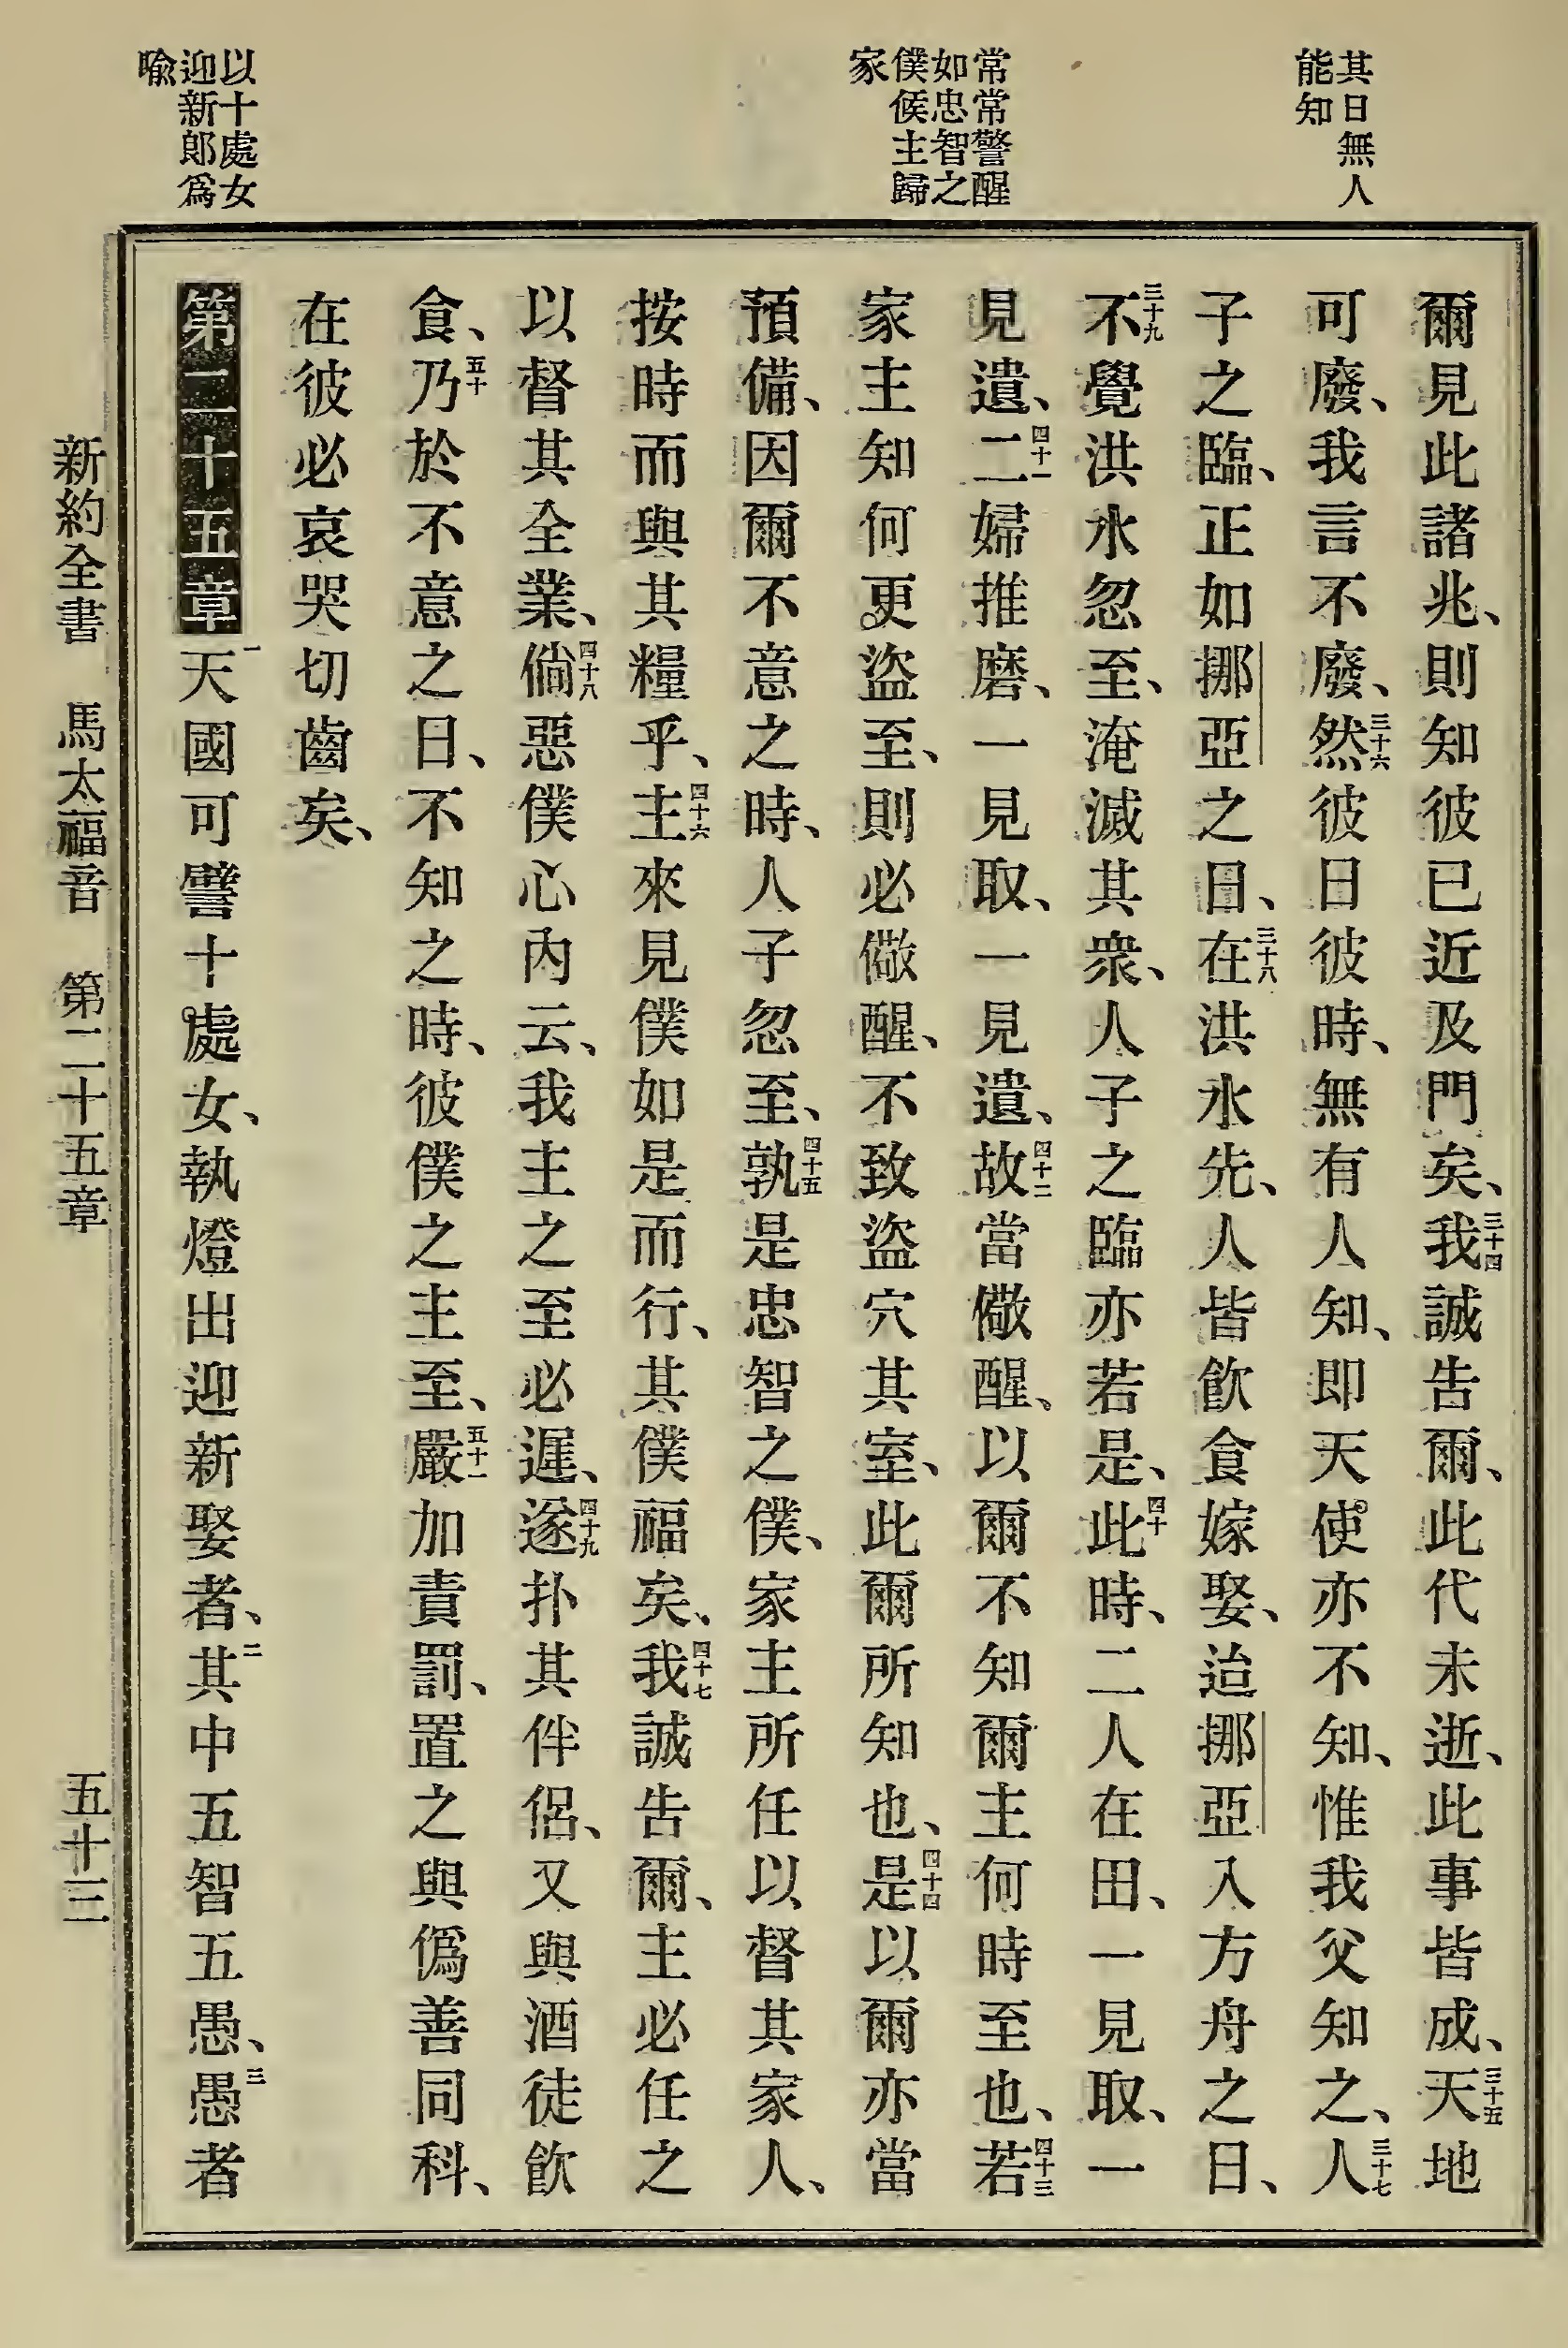 其日無人
能知
常常警醒
如忠智之
僕候主歸
家
以十處女
迎新郎爲
喻
爾見此諸兆、則知彼已近及門矣、三十四我誠告爾、此代未逝、此事皆成、三十五天地
可廢、我言不廢、三十六然彼日彼時、無有人知、即天使亦不知、惟我父知之、三十七人
子之臨、正如挪亞之日、三十八在洪水先、人皆飲食嫁娶、迨挪亞入方舟之日、
三十九不覺洪水忽至、淹滅其衆、人子之臨亦若是、四十此時、二人在田、一見取、一
見遺、四十一二婦推磨、一見取、一見遺、四十二故當儆醒、以爾不知爾主何時至也、四十三若
家主知何更盜至、則必儆醒、不致盜穴其室、此爾所知也、四十四是以爾亦當
預備、因爾不意之時、人子忽至、四十五孰是忠智之僕、家主所任以督其家人、
按時而與其糧乎、四十六主來見僕如是而行、其僕福矣、四十七我誠告爾、主必任之
以督其全業、四十八倘惡僕心內云、我主之至必遲、四十九遂扑其伴侶、又與酒徒飲
食、五十乃於不意之日、不知之時、彼僕之主至、五十一嚴加責罰、置之與僞善同科、
在彼必哀哭切齒矣、
第二十五章一天國可譬十處女、執燈出迎新娶者、二其中五智五愚、三愚者
新約全書 馬太福音 第二十五章 五十三